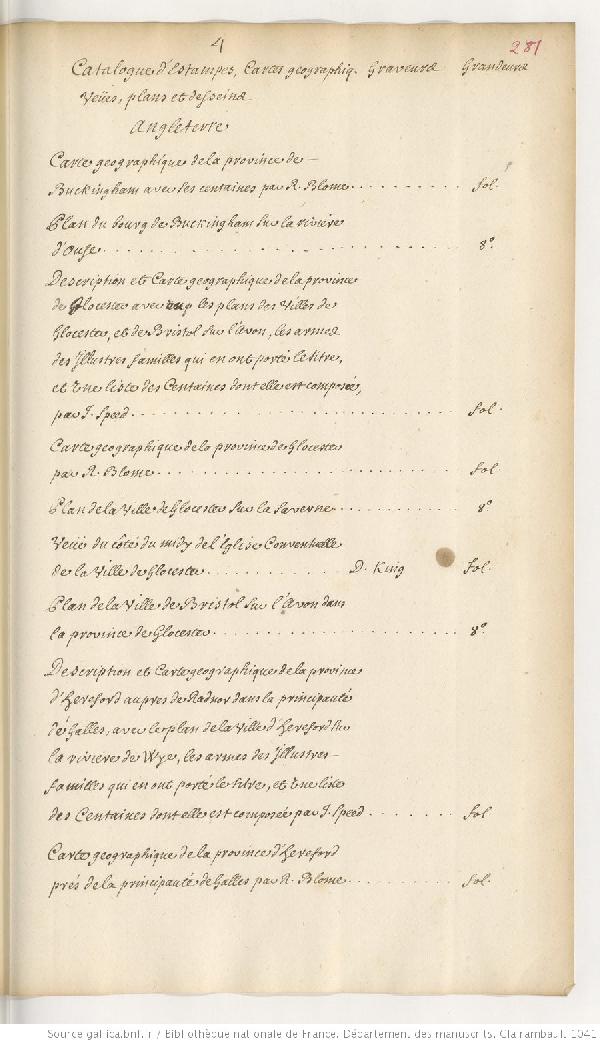 4
281
Catalogue d'Estampes, Cartes geographiq. Graveurs Grandeurs
Veües, plans et desseins
Angleterre
Carte geographique de la province de
Buckingham avec ses centaines par R. Blome. . . . . . . . . . fol.
Plan du bourg de Buckingham sur la riviere
d'Ouse . . . . . . . . . . . . . . . . . . . . . . . . . . . 8°.
Description et Carte geographique de la province
de Glocester avec les plans des Villes de
Glocester, et de Bristol sur l'Avon, les armes
des Illustres familles qui en ont porté le titre,
et une liste des Centaines dont elle est composée,
par J. Speed . . . . . . . . . . . . . . . . . . . . . . . . fol.
Carte geographique de la province de Glocester
par R. Blome . . . . . . . . . . . . . . . . . . . . . . . . fol
Plan de la Ville de Glocester sur la Saverne . . . . . . . . . . 8°
Veüe du côté du midy de l'Eglise Conventuelle
de la Ville de Glocester . . . . . . . . . . . . D. King fol.
Plan de la Ville de Bristol sur l'Avon dans
la province de Glocester . . . . . . . . . . . . . . . . . . . 8°
Description et Carte geographique de la province
d'Hereford aupres de Radnor dans la principauté
de Galles, avec le plan de la Ville d'Hereford sur
la riviere de Wye, les armes des Illustres
familles qui en ont porté le titre, et une liste
des Centaines dont elle est composée par J. Speed . . . . . . . fol
Carte geographique de la province d'Hereford
prés de la principauté de Galles par R. Blome . . . . . . . . . fol.
Source gallica.bnf.fr / Bibliothèque nationale de France. Département des manuscrits. Clairambault 1041